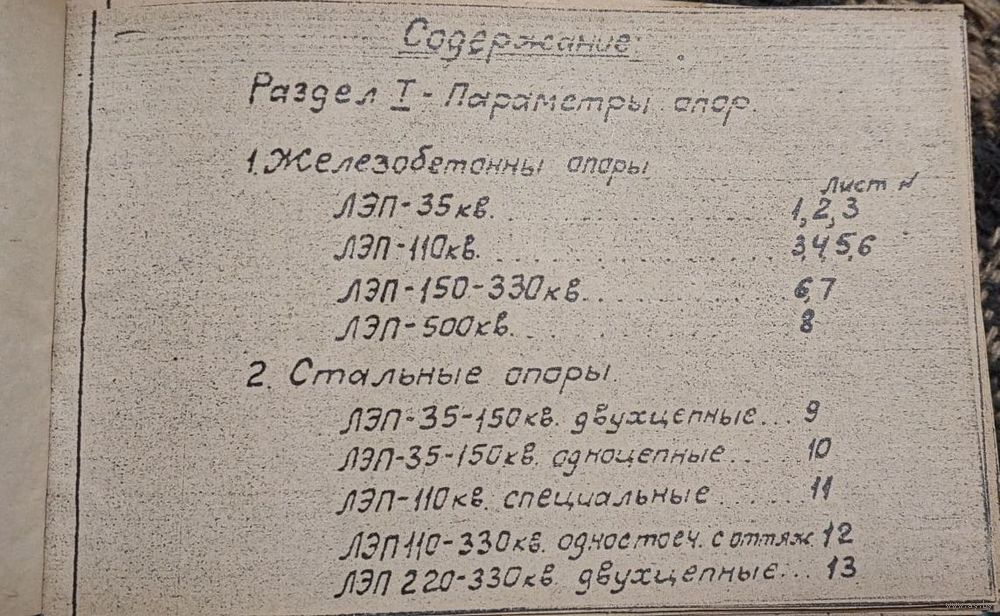 Содержание
Раздел I - Параметры опор.
1. Железобетонны опоры
Лист №
ЛЭП-35кв. 1,2,3
ЛЭП-110кв. 3,4,5,6
ЛЭП-150-330кв. 6,7
ЛЭП-500кв. 8
2. Стальные опоры.
ЛЭП-35-150кв. двухцепные... 9
ЛЭП-35-150кв. одноцепные... 10
ЛЭП-110кв. специальные 11
ЛЭП 110-330кв. одностоеч. с оттяж 12
ЛЭП 220-330кв. двухцепные... 13